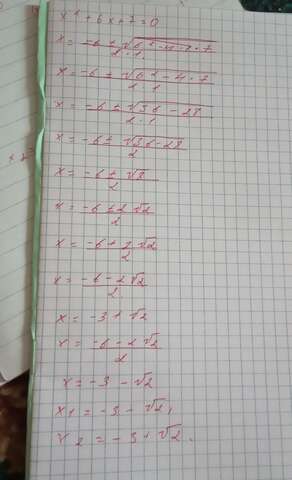 x² + 6x + 7 = 0
x = -6 ± √6² - 4 · 1 · 7 / 2 · 1
x = -6 ± √6² - 4 · 7 / 2 · 1
x = -6 ± √36 - 28 / 2 · 1
x = -6 ± √36 - 28 / 2
x = -6 ± √8 / 2
x = -6 ± 2 √2 / 2
x = -6 + 2 √2 / 2
x = -6 - 2 √2 / 2
x = -3 + √2
x = -6 - 2 √2 / 2
x = -3 - √2
x1 = -3 - √2,
x2 = -3 + √2.